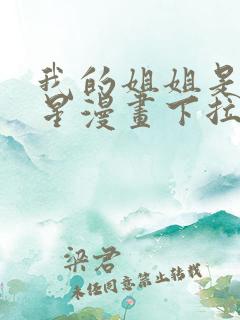 我的姐姐是
星漫畫下拉
梁君
未经同意禁止转载